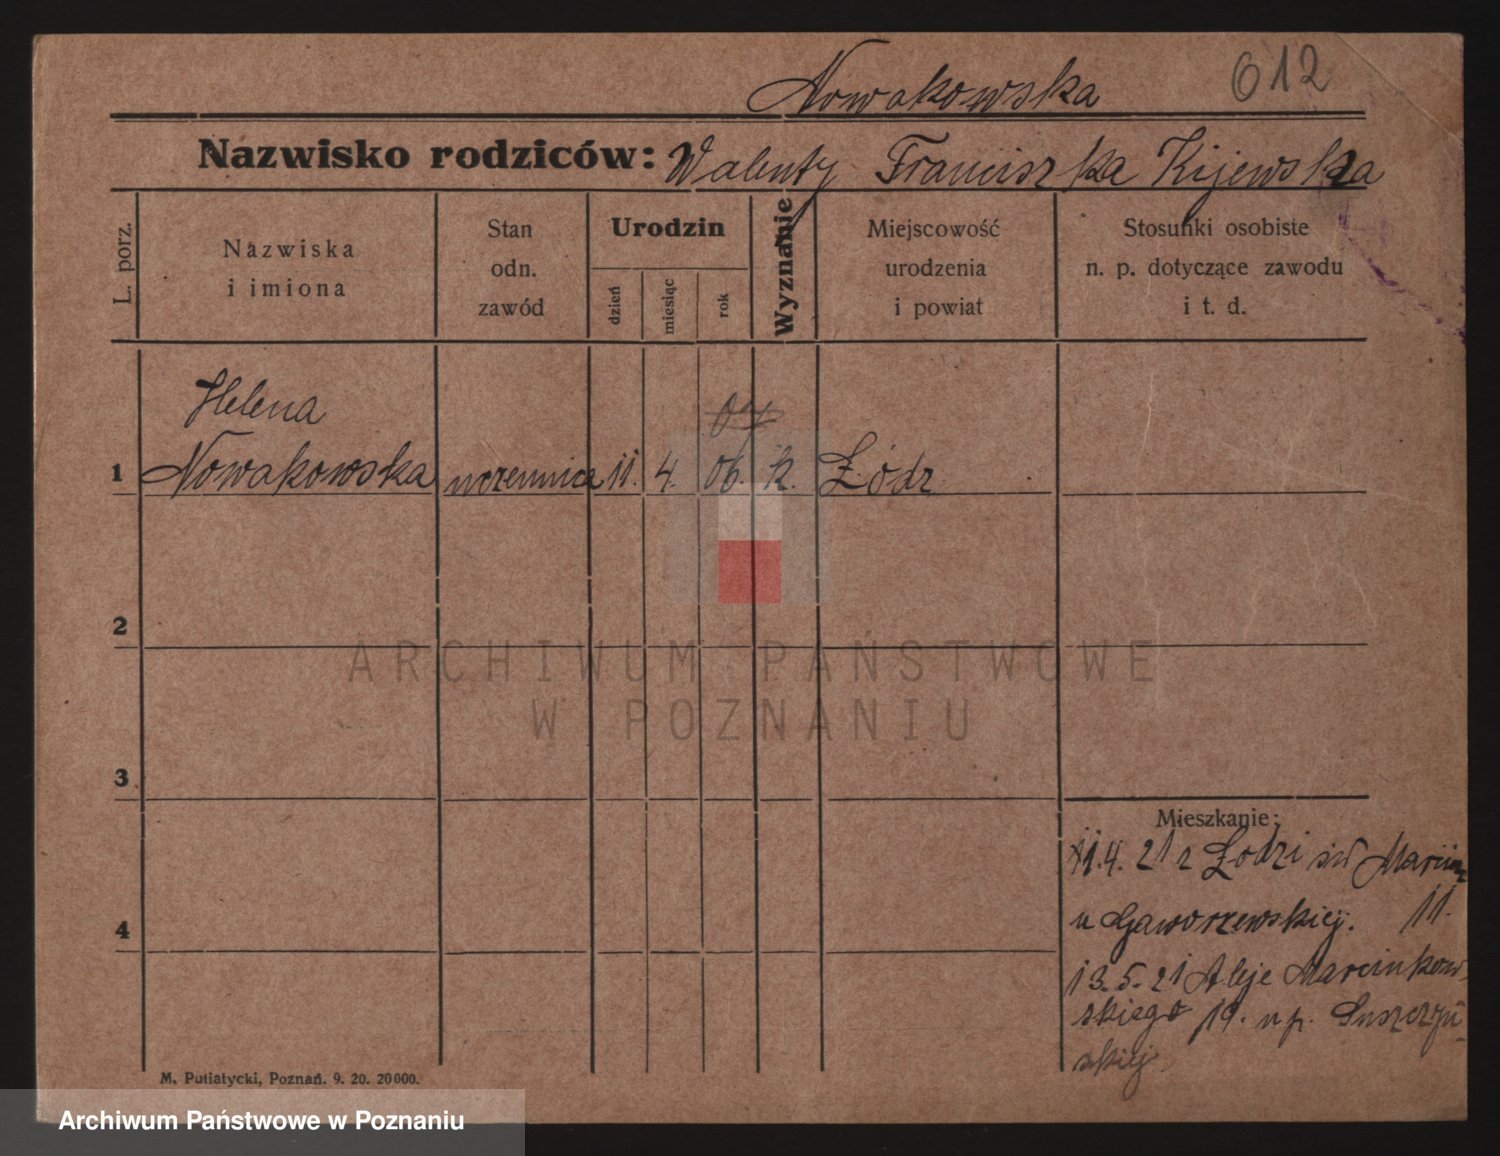 Nowakowska
612
Nazwisko rodziców: Walenty Franciszka Kijewska
L. porz.
Nazwiska
i imiona
Stan
odn.
zawód
Urodzin
dzień
miesiąc
rok
Wyznanie
Miejscowość
urodzenia
i powiat
Stosunki osobiste
n. p. dotyczące zawodu
i t. d.
Helena
07
1 Nowakowska uczennica 11. 4. 06. k. Łódz
2
3
4
Mieszkanie:
11.4. 21 z Łodzi św Marcin
u Gaworzewskiej. 11.
13.5.21 Aleje Marcinkow-
skiego 19. u p. Suszczyń-
skiej
M. Putiatycki, Poznań. 9. 20. 20000.
ARCHIWUM PAŃSTWOWE
W POZNANIU
Archiwum Państwowe w Poznaniu